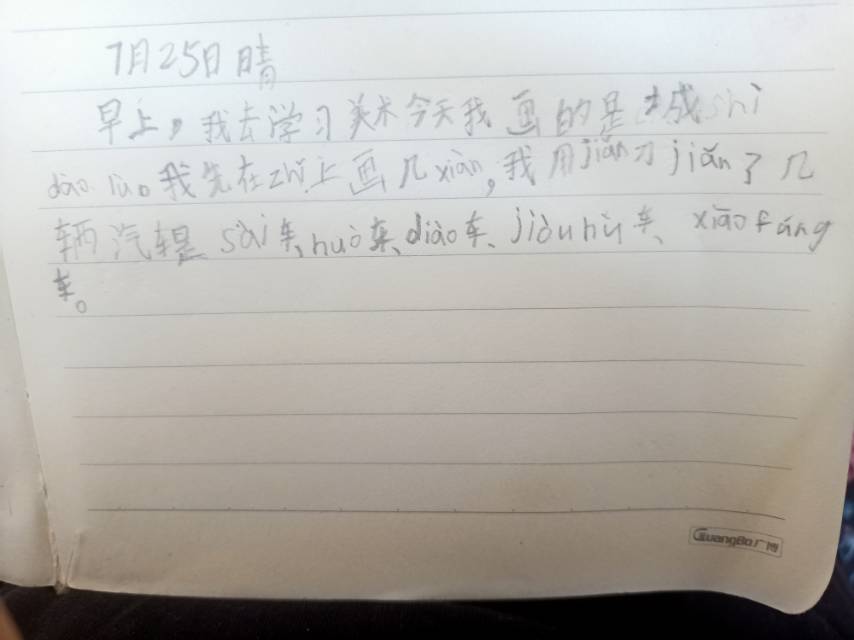 7月25日 晴
早上，我去学习美术今天我画的是城shì
dào lù。我先在zhǐ上画几xiàn，我用jiǎn刀jiǎn了几
辆汽 sài车、huò车、diào车、jiùhù车、xiāofáng
车。
GuangBo广博